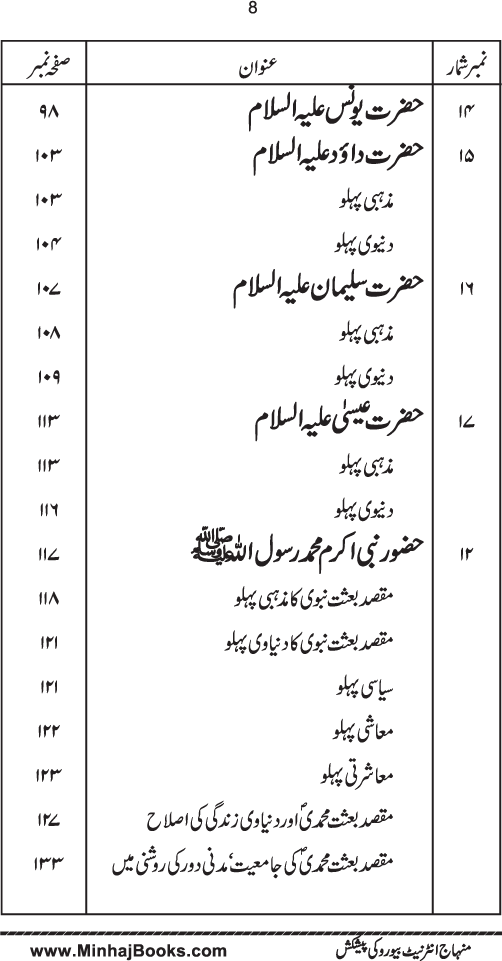 8
نمبر شمار عنوان صفحہ نمبر
۱۴ حضرت یونس علیہ السلام ۹۸
۱۵ حضرت داؤد علیہ السلام ۱۰۳
مذہبی پہلو ۱۰۳
دنیوی پہلو ۱۰۴
۱۶ حضرت سلیمان علیہ السلام ۱۰۷
مذہبی پہلو ۱۰۸
دنیوی پہلو ۱۰۹
۱۷ حضرت عیسیٰ علیہ السلام ۱۱۳
مذہبی پہلو ۱۱۳
دنیوی پہلو ۱۱۶
۱۲ حضور نبی اکرم محمد رسول اللہ ﷺ ۱۱۷
مقصد بعثت نبوی کا مذہبی پہلو ۱۱۸
مقصد بعثت نبوی کا دنیاوی پہلو ۱۲۱
سیاسی پہلو ۱۲۱
معاشی پہلو ۱۲۲
معاشرتی پہلو ۱۲۳
مقصد بعثت محمدیؐ اور دنیاوی زندگی کی اصلاح ۱۲۷
مقصد بعثت محمدیؐ کی جامعیت، مدنی دور کی روشنی میں ۱۳۳
منہاج انٹرنیٹ بیورو کی پیشکش www.MinhajBooks.com